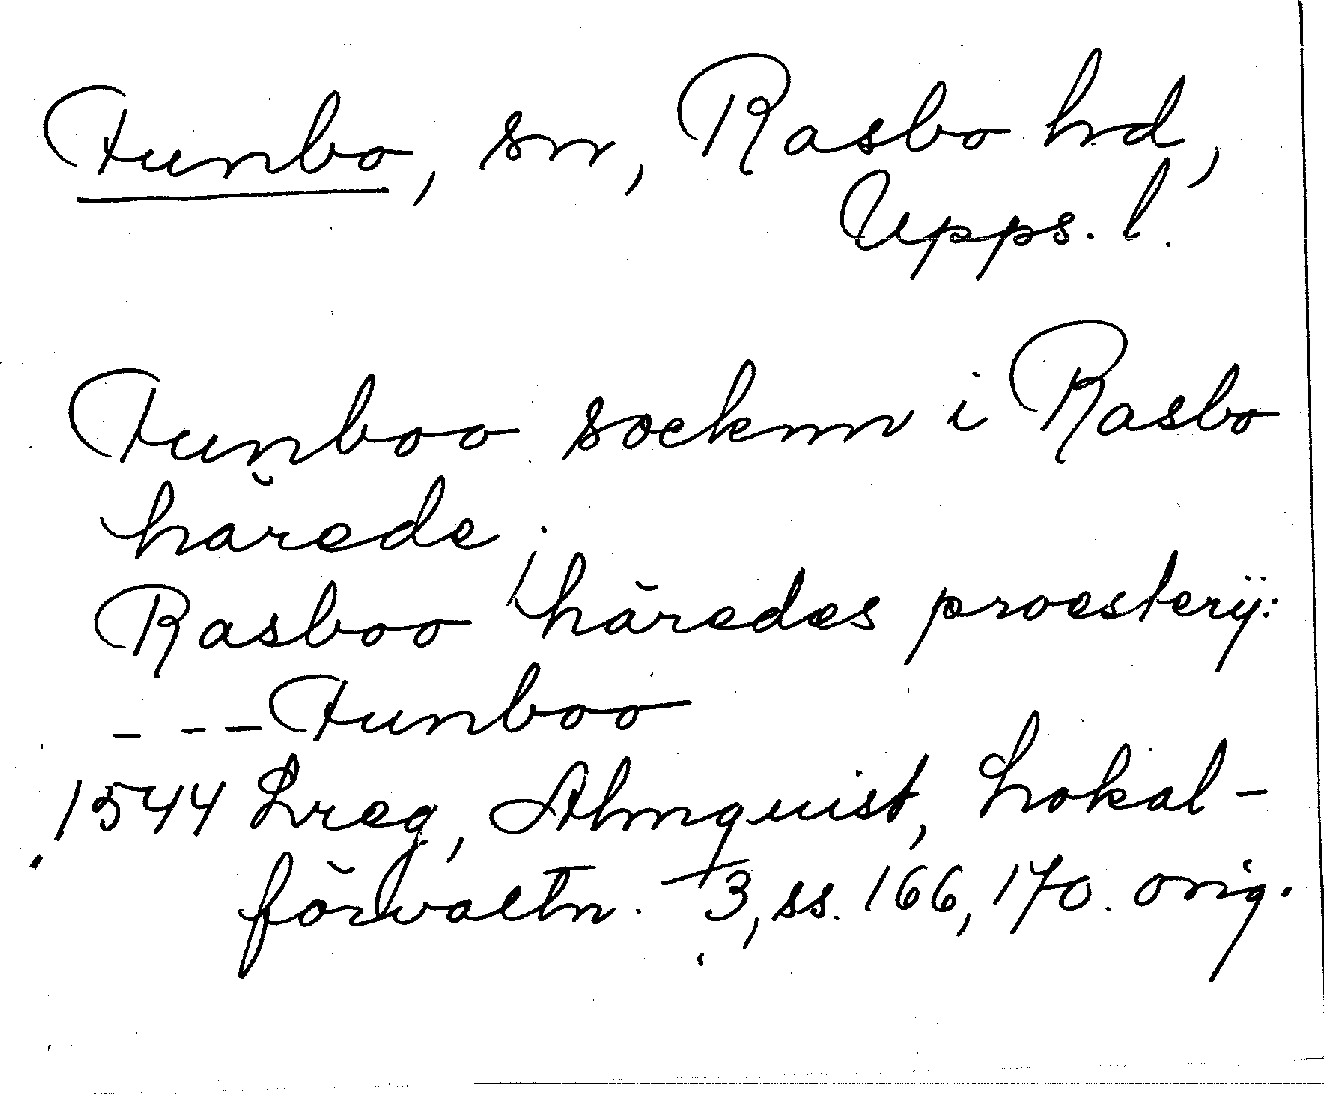 Funbo, sn, Rasbo hd,
Upps. l.
Funboo socknn i Rasbo
hărede;
Rasboo hăredes proesterÿ:
- - - Funboo
1544 Lreg, Almquist, Lokal-
förvaltn. 3, ss. 166, 170. orig.